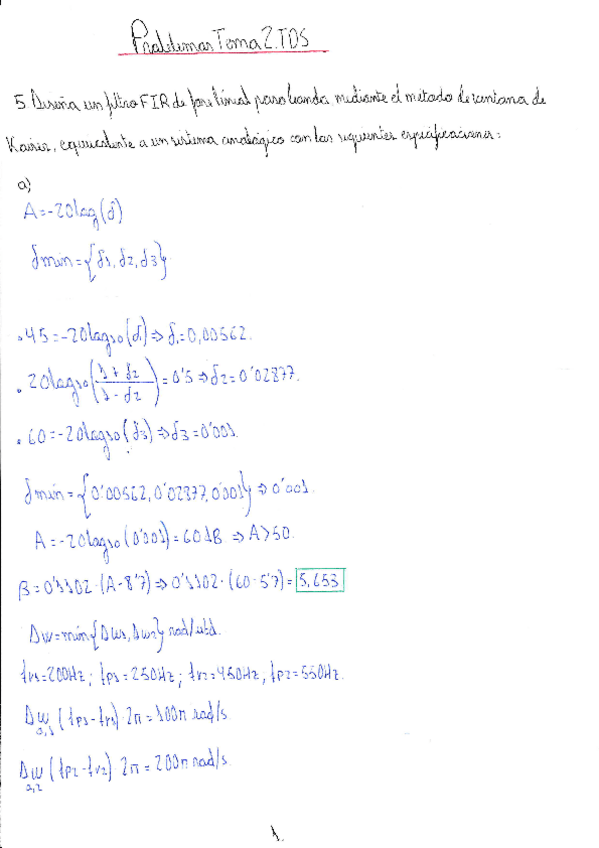 Problemas Tema 2. TDS
5. Diseña un filtro FIR de fase lineal paso banda mediante el método de ventana de
Kaiser, equivalente a un sistema analógico con las siguientes especificaciones:
a)
A=-20log(δ)
δmin={δ1, δ2, δ3}
• 45=-20log10(δ1)⇒δ1=0,00562.
• 20log10((1+δ2)/(1-δ2))=0'5⇒δ2=0'02877.
• 60=-20log10(δ3)⇒δ3=0'001.
δmin={0'00562, 0'02877, 0'001}⇒0'001.
A=-20log10(0'001)=60dB ⇒A>50.
β=0'1102·(A-8'7)⇒0'1102·(60-5'7)=5,653
Δw=min{Δw1, Δw2} rad/utd.
fr1=200Hz; fp1=250Hz; fr2=450Hz, fp2=550Hz.
Δwa,1 (fp1-fr1)·2π=100π rad/s
Δwa,2 (fp2-fr2)·2π=200π rad/s
1.